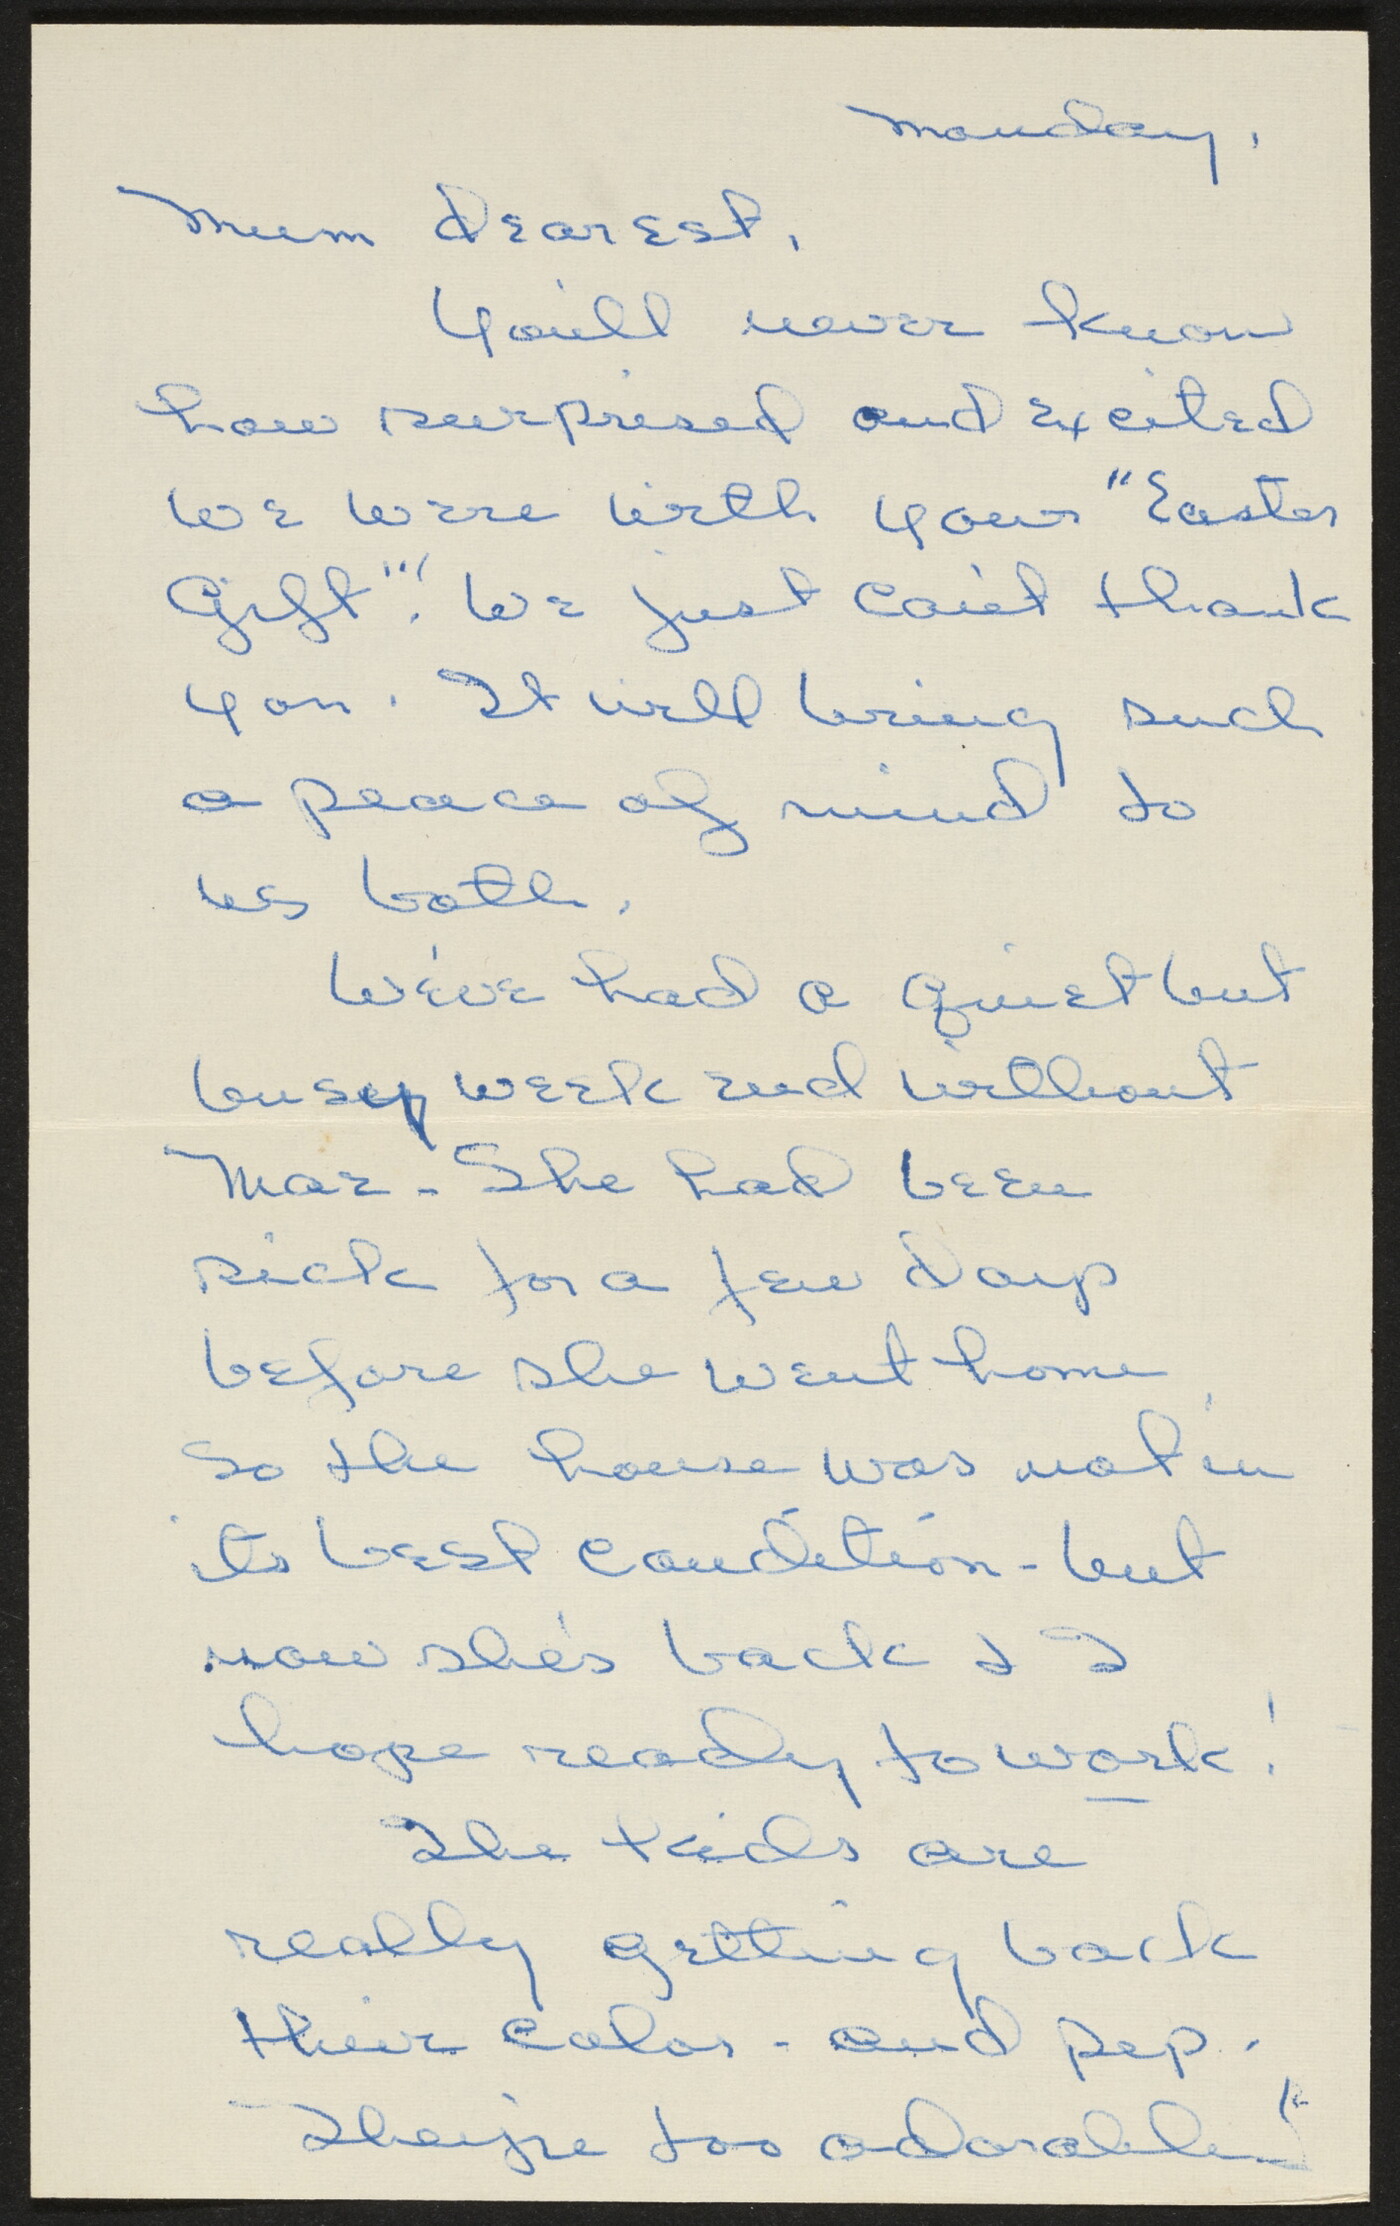 Monday.
Mum dearest,
You'll never know
how surprised and excited
we were with your "Easter
Gift"! We just can't thank
you. It will bring such
a peace of mind to
us both.
We've had a quiet but
busy week end without
Mae - She had been
sick for a few days
before she went home
so the house was not in
its best condition - but
now she's back & I
hope ready to work!
The kids are
really getting back
their color - and pep.
They're too adorable!